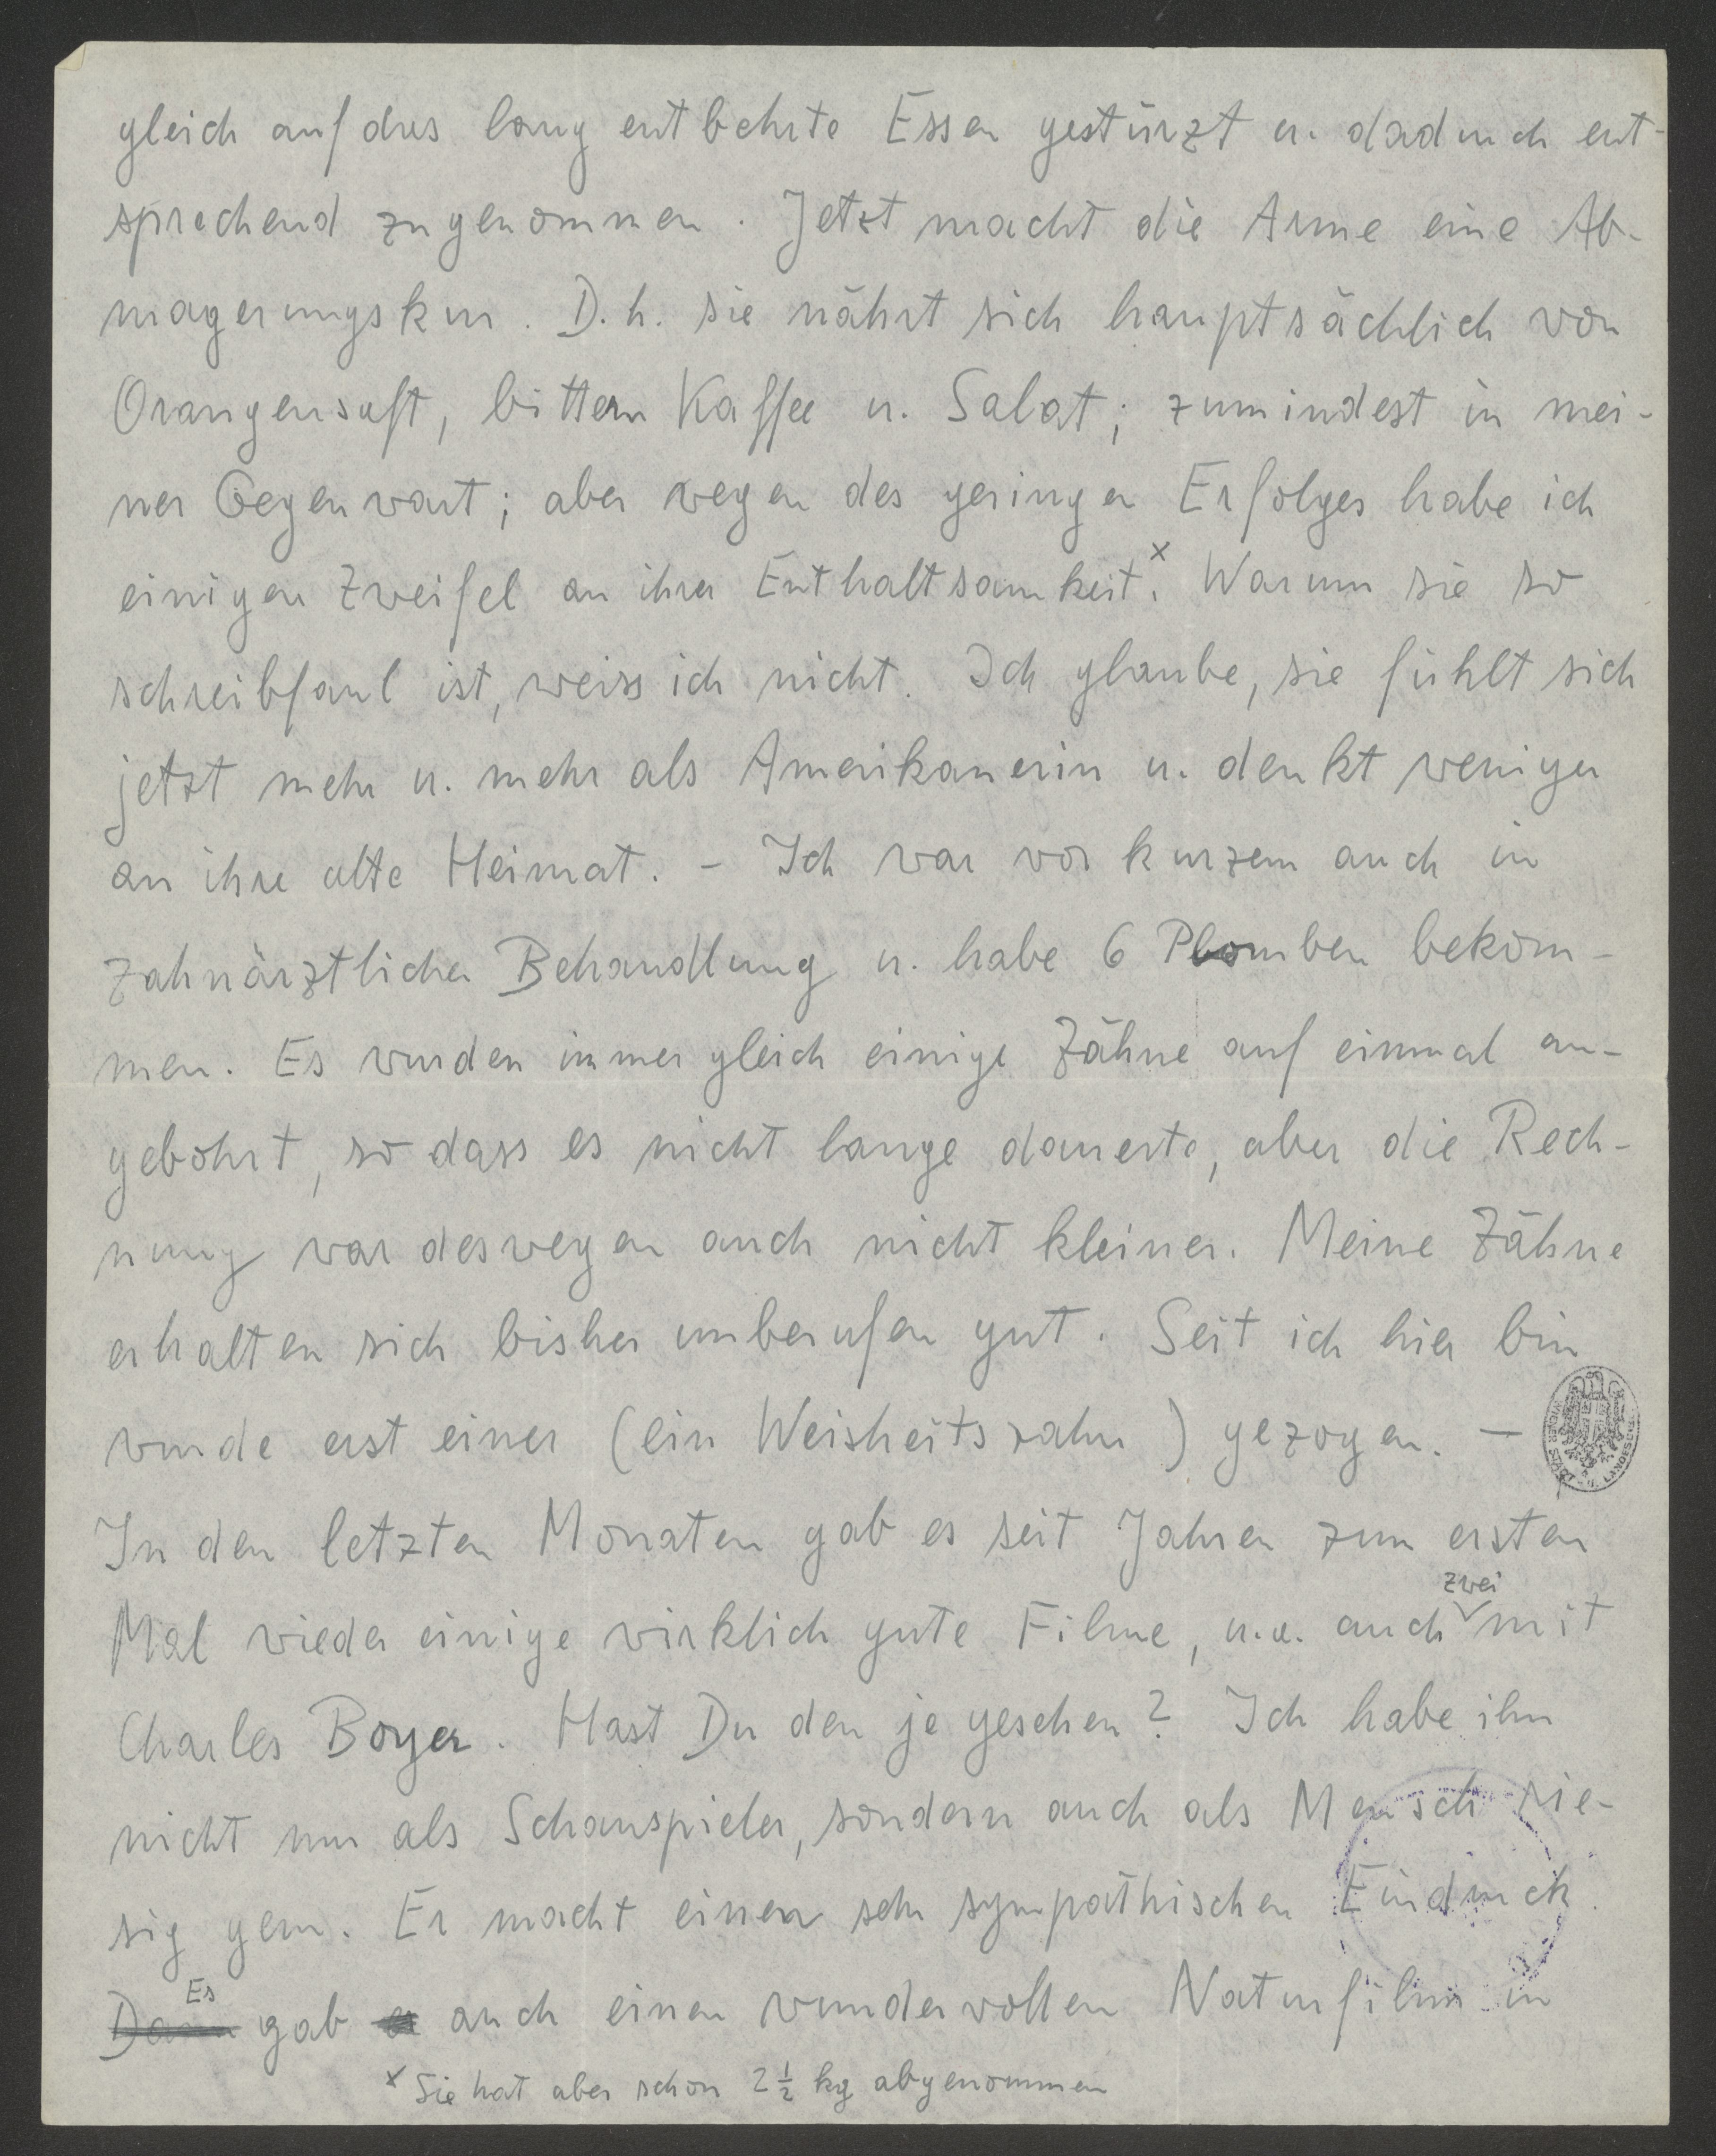 gleich auf das lang entbehrte Essen gestürzt u. dadurch ent-
sprechend zugenommen. Jetzt macht die Arme eine Ab-
magerungskur. D.h. sie nährt sich hauptsächlich von
Orangensaft, bittern Kaffee u. Salat; zumindest in mei-
ner Gegenwart; aber wegen des geringen Erfolges habe ich
einigen Zweifel an ihrer Enthaltsamkeit.x Warum sie so
schreibfaul ist, weiss ich nicht. Ich glaube, sie fühlt sich
jetzt mehr u. mehr als Amerikanerin u. denkt weniger
an ihre alte Heimat. – Ich war vor kurzem auch in
zahnärztlicher Behandlung u. habe 6 Plomben bekom-
men. Es wurden immer gleich einige Zähne auf einmal an-
gebohrt, so dass es nicht lange dauerte, aber die Rech-
nung war deswegen auch nicht kleiner. Meine Zähne
erhalten sich bisher unberufen gut. Seit ich hier bin
wurde erst einer (ein Weisheitszahn) gezogen. –
In den letzten Monaten gab es seit Jahren zum ersten
Mal wieder einige wirklich gute Filme, u.a. auch zwei mit
Charles Boyer. Hast Du den je gesehen? Ich habe ihn
nicht nur als Schauspieler, sondern auch als Mensch rie-
sig gern. Er macht einen sehr sympathischen Eindruck.
Dann Es gab es auch einen wundervollen Naturfilm in
x Sie hat aber schon 2 1/2 kg abgenommen